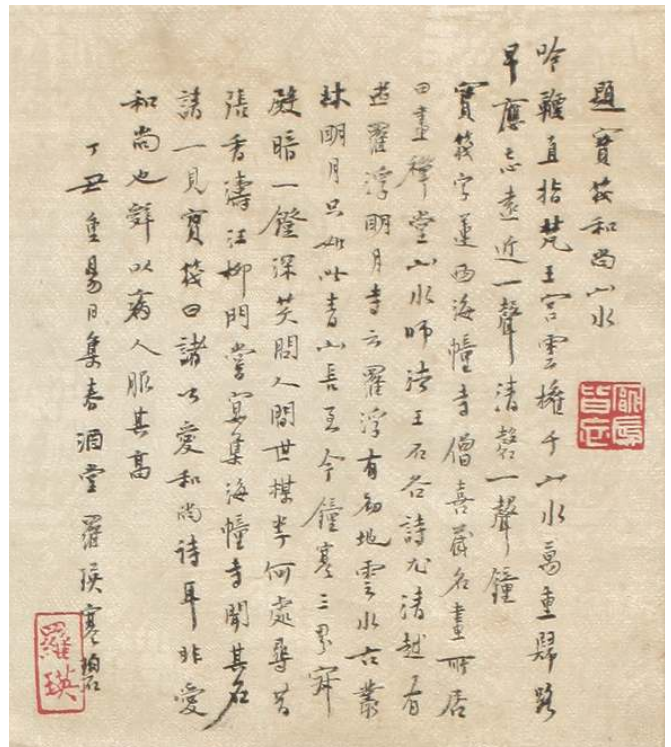 題寶筏和尚山水
吟鞭直指梵王宮雲擁千山水萬重歸路
早應忘遠近一聲清磬一聲鐘
寶筏字蓮西海幢寺僧喜藏名畫所居
曰畫禪堂山水師法王石谷詩尤清越有
遊羅浮明月寺云羅浮有初地雲水古叢
林明月只如此青山長至今鐘寒三界寂
殿暗一鐙深笑問人間世榛苓何處尋昔
張香濤汪柳門嘗宴集海幢寺聞其名
請一見寶筏曰諸公愛和尚詩耳非愛
和尚也辭以病人服其高
丁丑重昜日集春酒堂 羅瑛寒碧
羅瑛